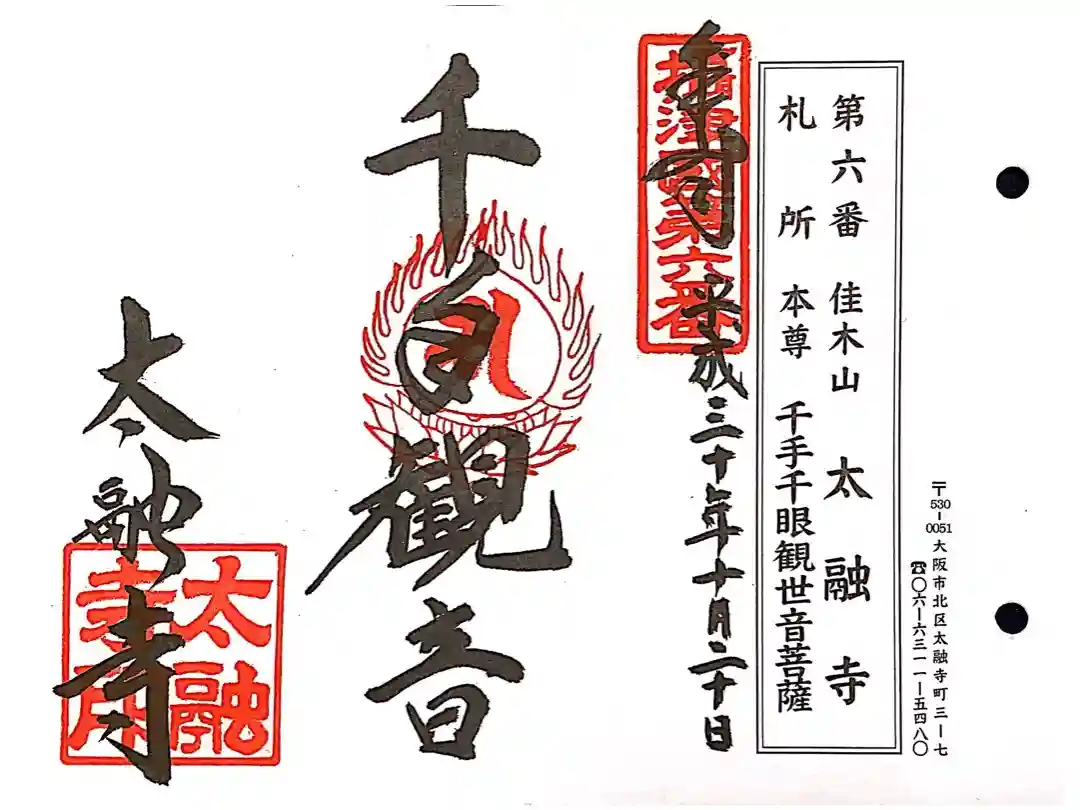 〒530-0051 大阪市北区太融寺町三ー七
☎〇六ー六三一一ー五四八〇
第六番 佳木山 太融寺
札所 本尊 千手千眼観世音菩薩
奉拝 平成三十年十月二十日
攝津國第六番
千手観音
太融寺
太融
寺印